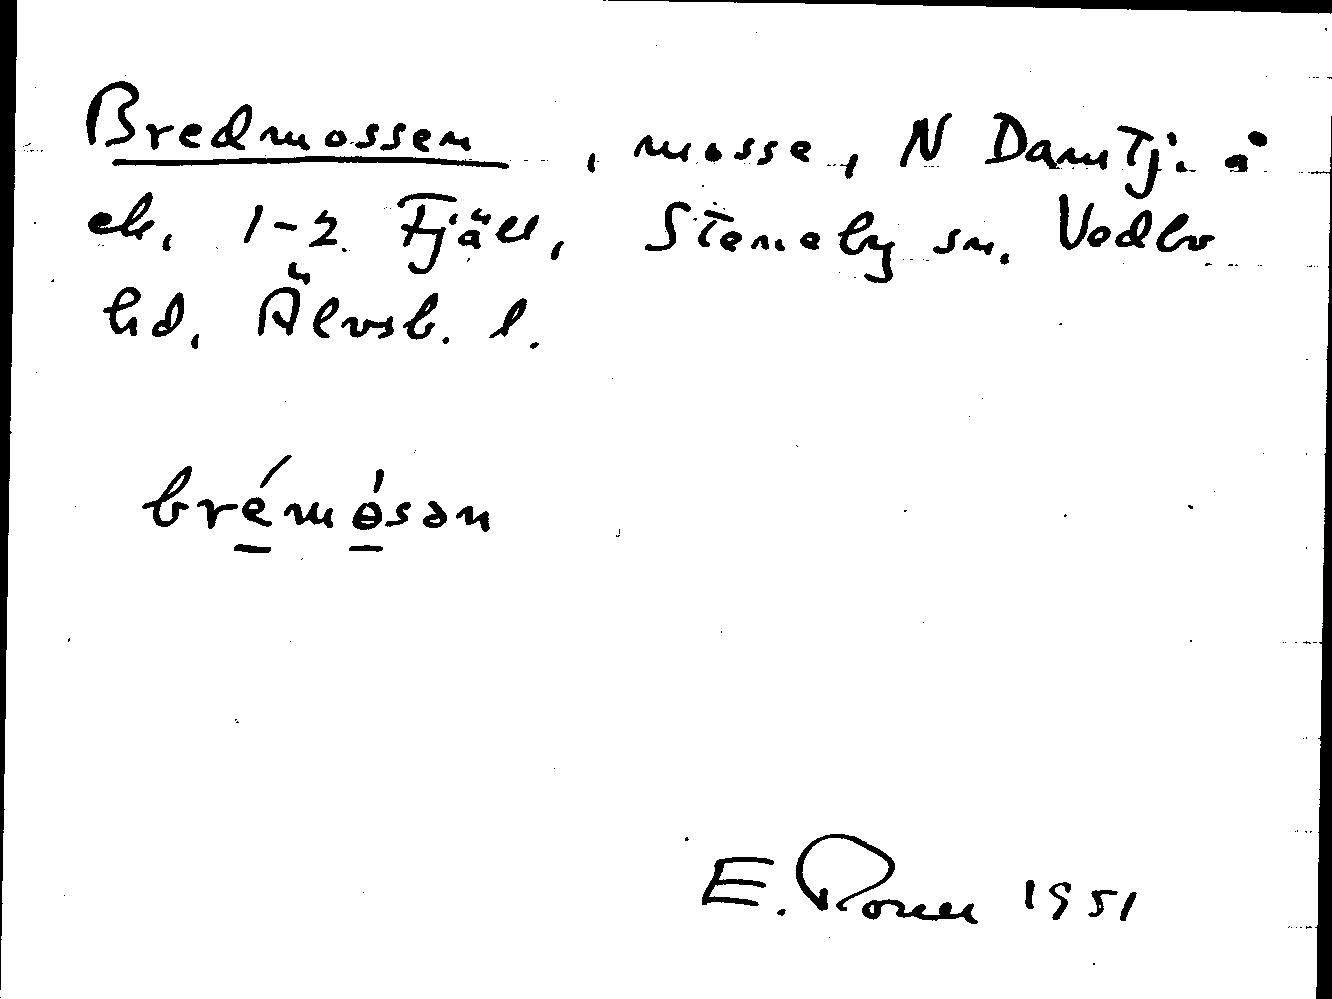 Bredmossen, mosse, N Damtj. å
ek. 1-2 Fjäll, Steneby sn. Vedbo
hd. Älvsb. l.
brémósən
E. 1951